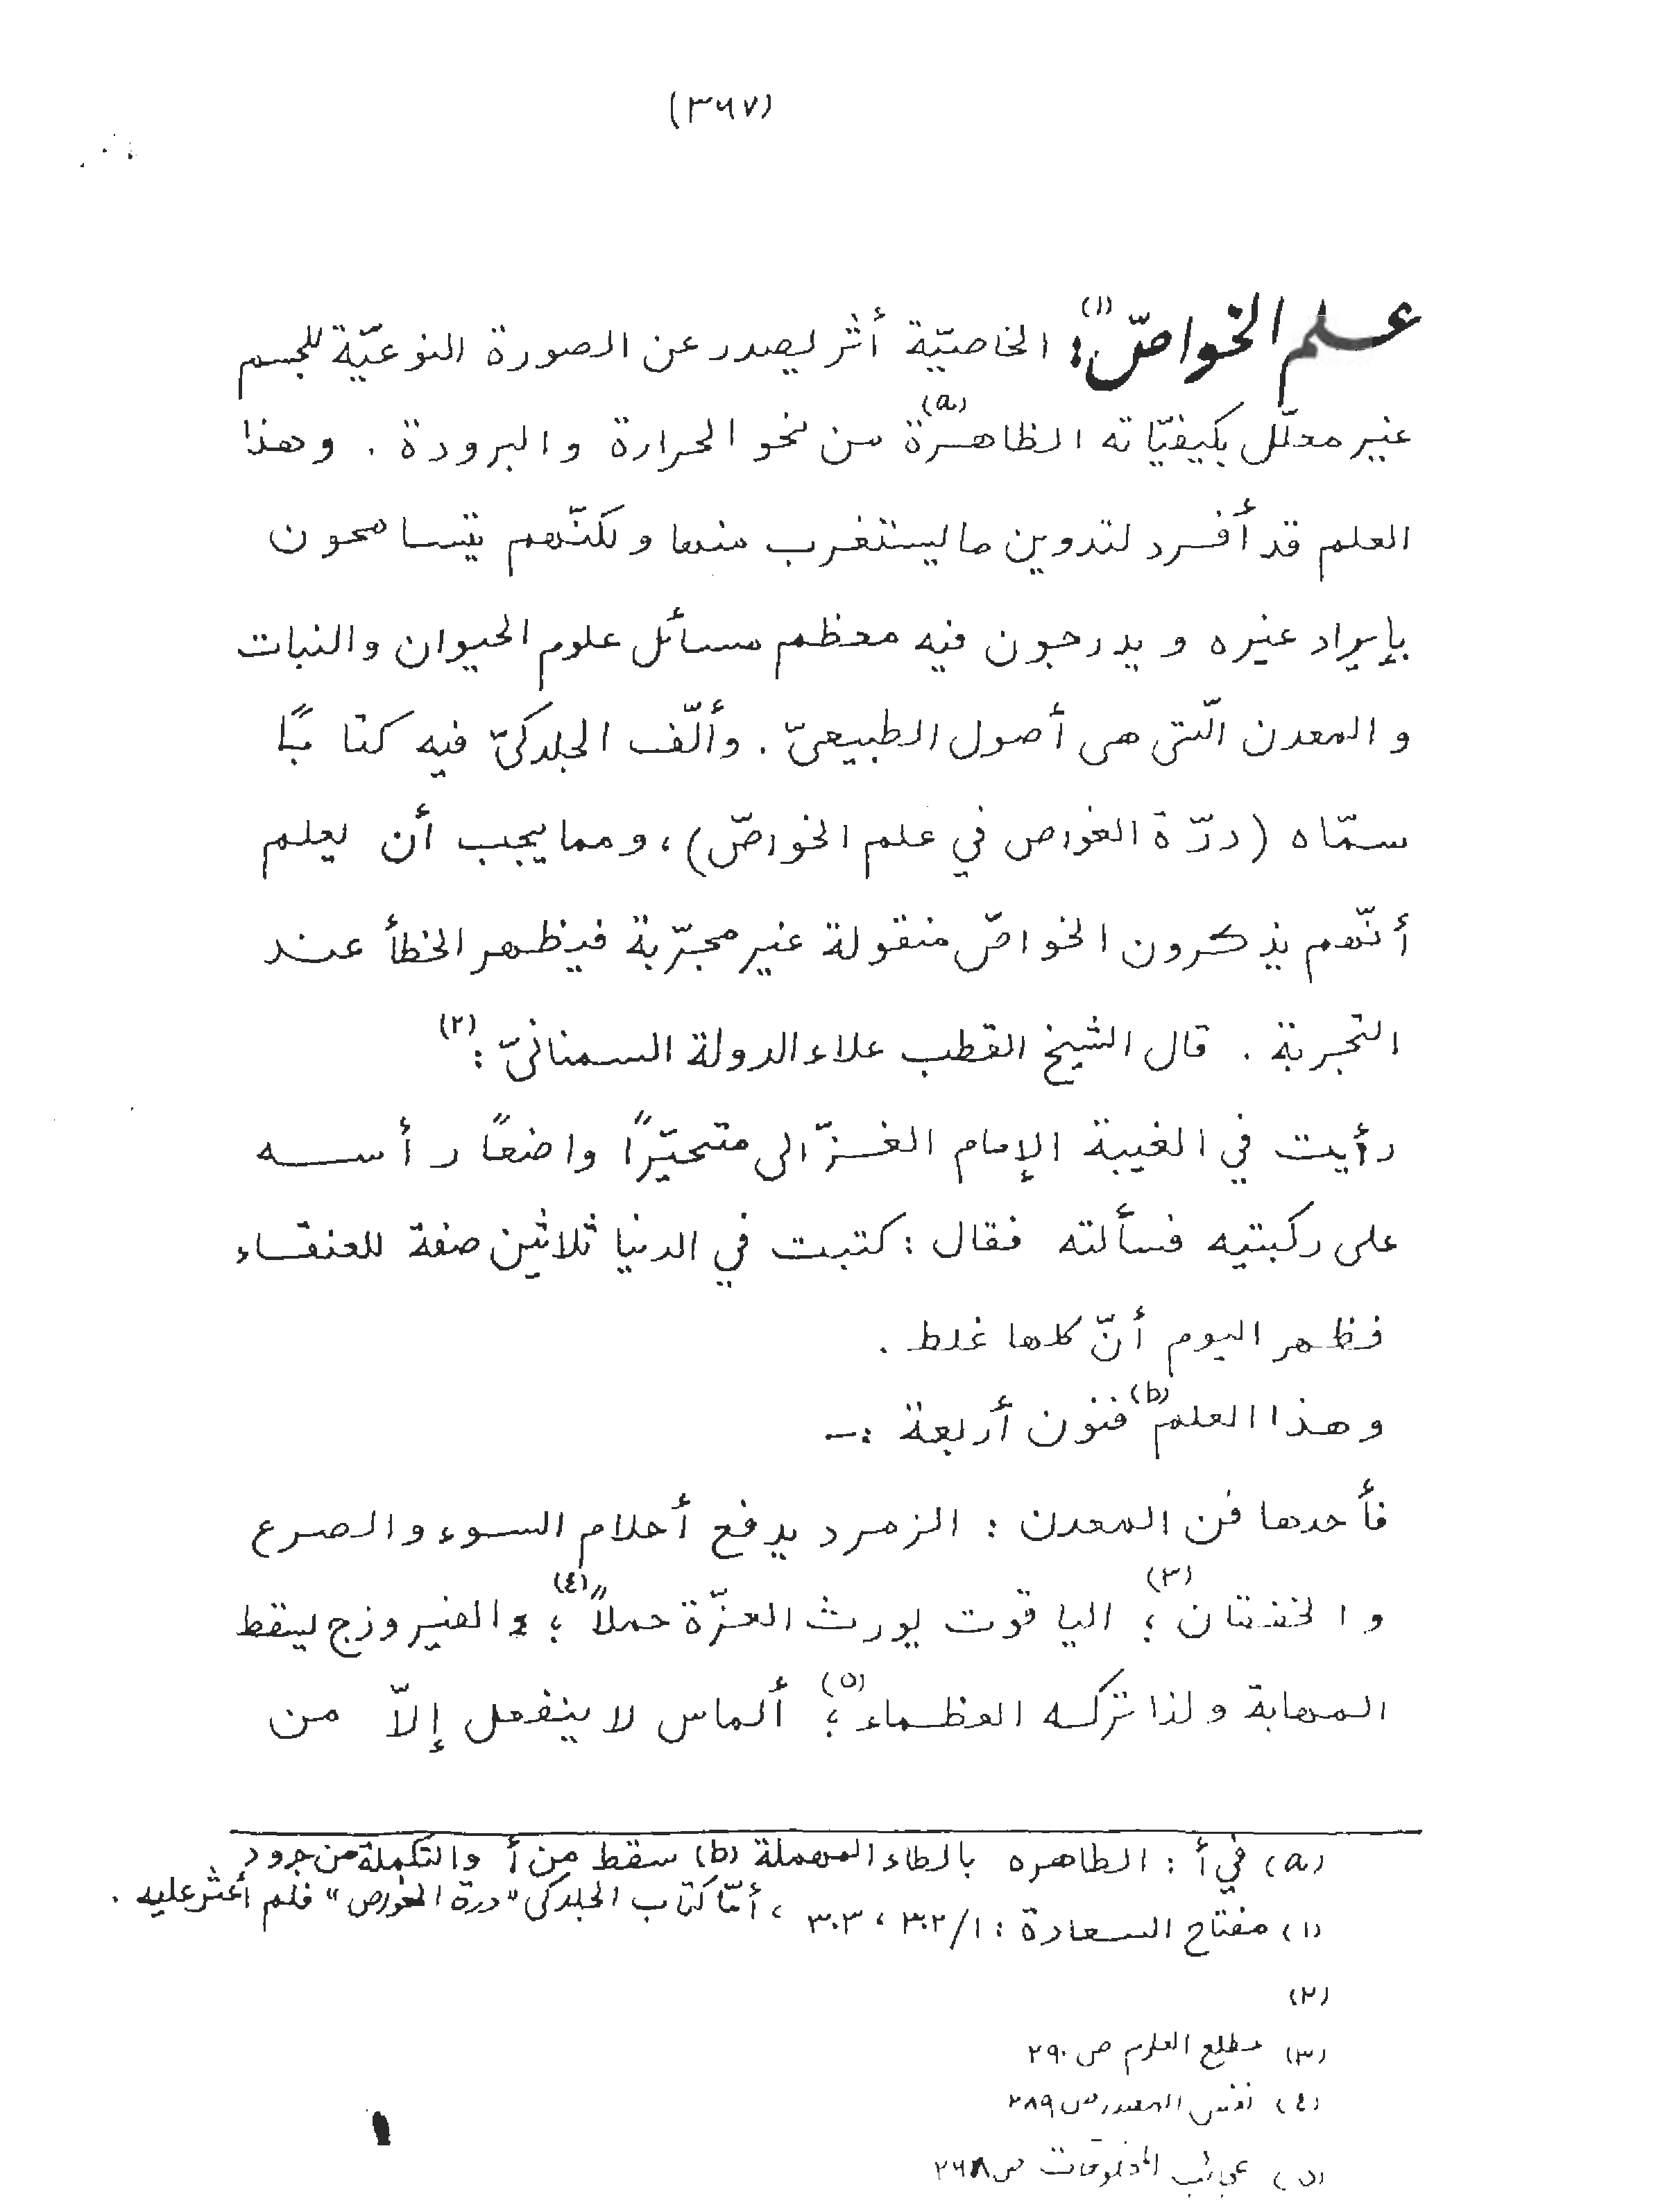 (٣٦٧)
علم الخواصّ(١): الخاصيّة أثر يصدر عن الصورة النوعيّة للجسم
غير معلّل بكيفيّاته الظاهرة(a) من نحو الحرارة والبرودة . وهذا
العلم قد أفرد لتدوين ما يستغرب منها ولكنّهم يتسامحون
بإيراد غيره ويدرجون فيه معظم مسائل علوم الحيوان والنبات
والمعدن الّتى هى أصول الطبيعىّ . وألّف الجلدكىّ فيه كتابًا
سمّاه (درّة الغواص في علم الخواصّ)، ومما يجب أن يعلم
أنّهم يذكرون الخواصّ منقولة غير مجرّبة فيظهر الخطأ عند
التجربة . قال الشيخ القطب علاء الدولة السمنانىّ :(٢)
رأيت في الغيبة الإمام الغزّالى متحيّرًا واضعًا رأسه
على ركبتيه فسألته فقال : كتبت في الدنيا ثلاثين صفة للعنقاء
فظهر اليوم أنّ كلها غلط .
وهذا العلم(b) فنون أربعة :ــ
فأحدها فن المعدن : الزمرد يدفع أحلام السوء والصرع
والخفقان(٣)؛ الياقوت يورث العزّة حملاً(٤)؛ والفيروزج يسقط
المهابة ولذا تركه العظماء(٥)؛ ألماس لا ينفعل إلاّ من
(a) في أ : الطاهره بالطاء المهملة (b) سقط من أ والتكملة من ج و د
(١) مفتاح السعادة : ١/ ٣٠٢ ، ٣٠٣ ، أمّا كتاب الجلدكى "درة الغواص" فلم أعثر عليه .
(٢)
(٣) مطلع العلوم ص ٢٩٠
(٤) نفس المصدر ص ٢٨٩
(٥) عجائب المخلوقات ص ٢٦٨